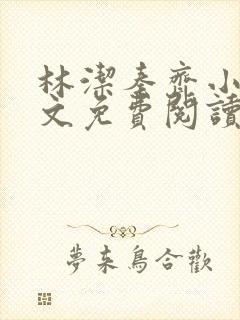 林潔秦齊小
文免費閱讀
夢来鳥合歡